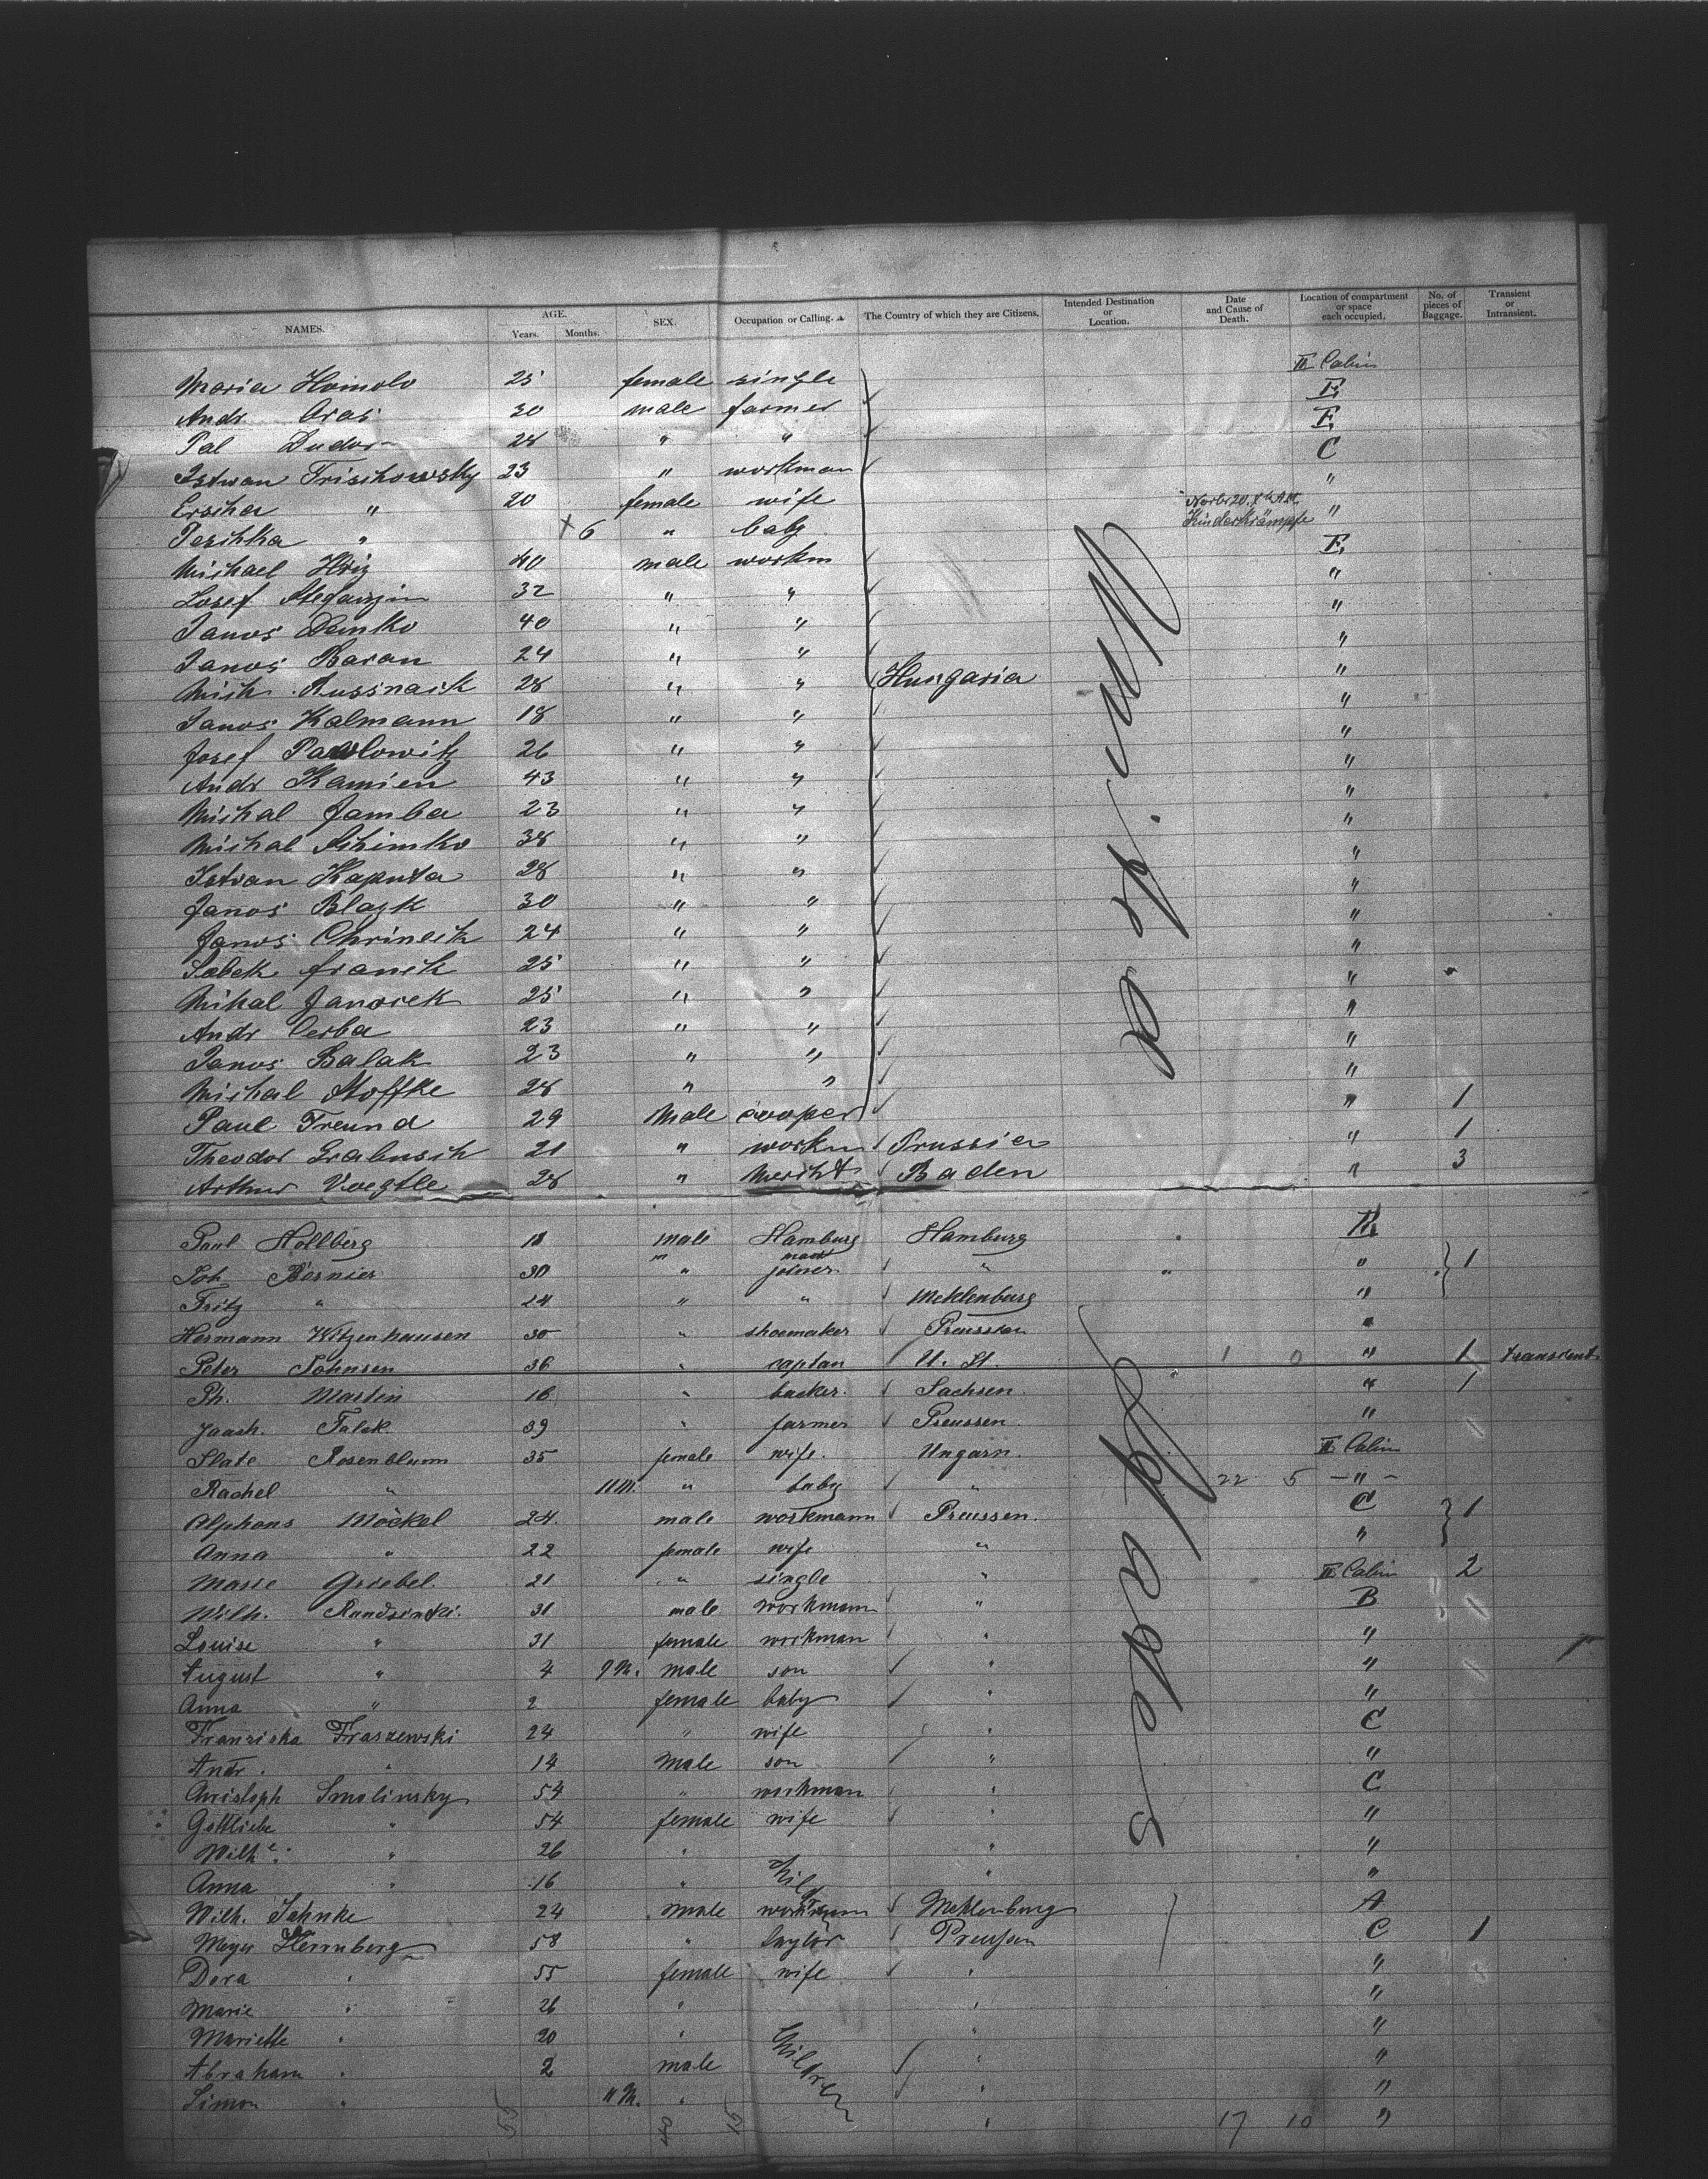 NAMES. AGE. Years. Months. SEX. Occupation or Calling. The Country of which they are Citizens. Intended Destination or Location. Date and Cause of Death. Location of compartment or space each occupied. No. of pieces of Baggage. Transient or Intransient.
Maria Homolo 25 female single II Cabin
Andr. Oras 30 male farmer E
Pal Dudor 28 " " E
Istwan Trischowsky 23 " workman C
Ersika " 20 female wife "
Peschka " × 6 " baby Novbr 20. Kinderkrämpfe "
Michael Hriz 40 male workm E
Josef 32 " " "
Janos Demko 40 " " "
Janos Baran 24 " " "
Mich. Russnack 28 " " Hungaria "
Janos Kalmann 18 " " "
Josef Pawlowitz 26 " " "
Andr Kamien 43 " " "
Michal Jamba 23 " " "
Michal Schimko 38 " " "
Istvan Kaputa 28 " " "
Janos Blazk 30 " " "
Janos 24 " " "
25 " " "
Mihal Janosek 25 " " "
Andr Cerba 23 " " "
Janos Balak 23 " " "
Michal Stoffke 28 " " "
Paul Freund 29 Male cooper " 1
Theodor Grabusch 21 " workm Prussia " 1
Arthur Voegtle 28 " Mercht Baden " 3
America
Paul Hollberg 18 male Hamburg Hamburg
Joh Börnier 30 " joiner " " 1
Fritz " 24 " " Meklenburg "
Hermann Witzenhausen 30 " shoemaker Preussen "
Peter Johnsen 36 " captan U. St. 1 0 " 1 transient
Ph. Martin 16 " backer. Sachsen. " 1
Joach. Falck 39 farmer Preussen. "
Slate Rosenblum 35 female wife. Ungarn. II Cabin
Rachel " 11 M. " baby " 22 5 - " -
Alphons Möckel 24. male workmann Preussen. C 1
Anna " 22 female wife " "
Marie Griebel. 21 " single " II Cabin 2
Wilh. 31 male workmann " B
Louise " 31 female workman " "
August " 4 9 M. male son " "
Anna " 2 female baby " "
Franziska Fraszewski 24 " wife " C
Andr. " 14 male son " "
Christoph Smolinsky 54 " workman " C
Gottliebe " 54 female wife " "
Wilh. " 26 " " "
Anna " 16 " " "
Wilh. Jahnke 24 male workmann Meklenburg A
Meyer Herrnberg 58 " taylor Preußen C 1
Dora " 55 female wife " "
Marie " 26 " " "
Mariette " 20 " " "
Abraham " 2 male Children " "
Simon " 11 M. " " "
" 17 10 "